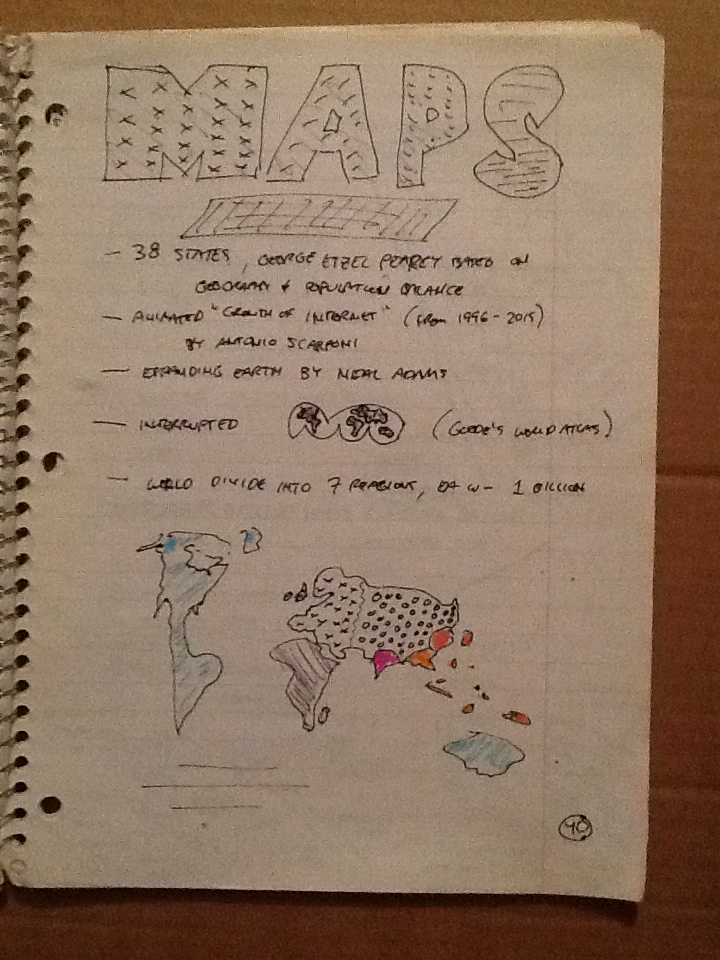 MAPS
- 38 STATES, GEORGE ETZEL PEARCY BASED ON
GEOGRAPHY & POPULATION
- ANIMATED "GROWTH OF INTERNET" (FROM 1996-2015)
BY ANTONIO SCARPONI
- EXPANDING EARTH BY NEAL ADAMS
- INTERRUPTED (GOODE'S WORLD ATLAS)
- WORLD DIVIDE INTO 7 REGIONS, EA W- 1 BILLION
40